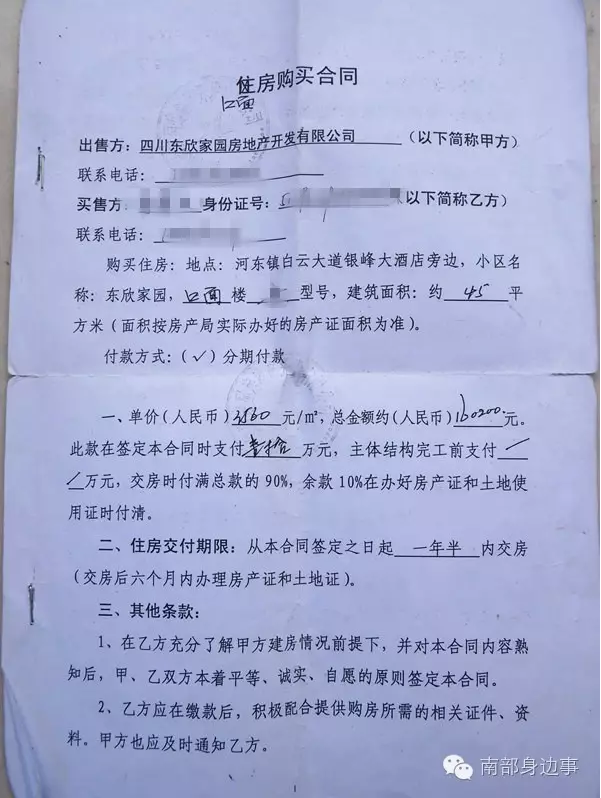 住房购买合同
口面
出售方：四川东欣家园房地产开发有限公司（以下简称甲方）
联系电话：
买售方：身份证号：以下简称乙方）
联系电话：
购买住房：地点：河东镇白云大道银峰大酒店旁边，小区名
称：东欣家园，口面楼 型号，建筑面积：约 45 平
方米（面积按房产局实际办好的房产证面积为准）。
付款方式：（✓）分期付款
一、单价（人民币）3560 元/㎡，总金额约（人民币）160200元。
此款在签定本合同时支付壹拾万元，主体结构完工前支付 /
/ 万元，交房时付满总款的 90%，余款 10%在办好房产证和土地使
用证时付清。
二、住房交付期限：从本合同签定之日起 一年半 内交房
（交房后六个月内办理房产证和土地证）。
三、其他条款：
1、在乙方充分了解甲方建房情况前提下，并对本合同内容熟
知后，甲、乙双方本着平等、诚实、自愿的原则签定本合同。
2、乙方应在缴款后，积极配合提供购房所需的相关证件、资
料。甲方也应及时通知乙方。
1
南部身边事